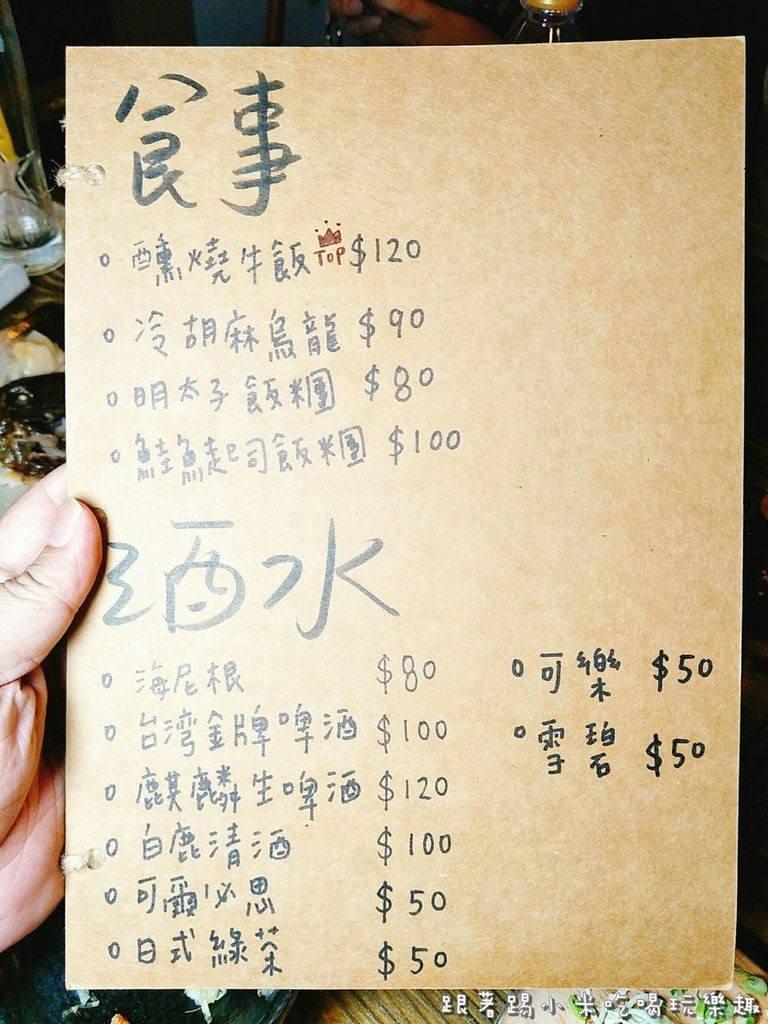 食事
醺燒牛飯 TOP $120
冷胡麻烏龍 $90
明太子飯糰 $80
鮭魚起司飯糰 $100
酒水
海尼根 $80
台湾金牌啤酒 $100
麒麟生啤酒 $120
白鹿清酒 $100
可爾必思 $50
日式綠茶 $50
可樂 $50
雪碧 $50
跟著踢小米吃喝玩樂趣